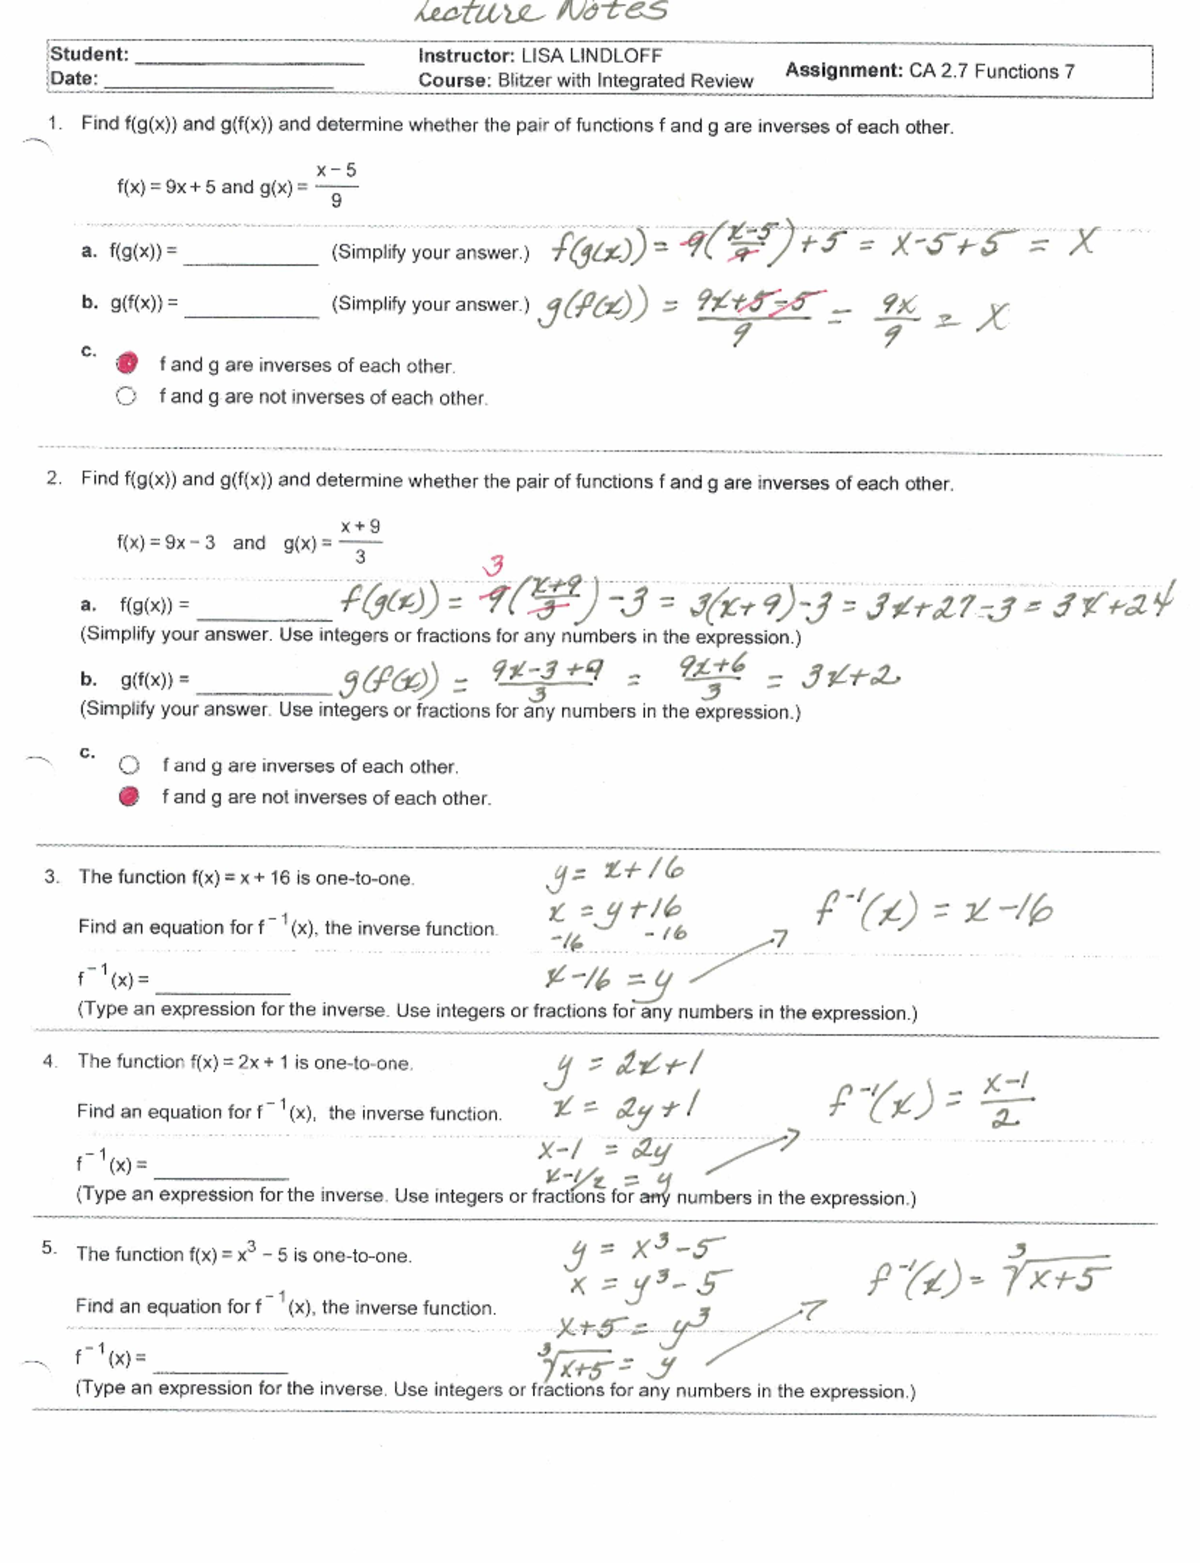 Lecture Notes
Student: ____________ Instructor: LISA LINDLOFF
Date: ____________ Course: Blitzer with Integrated Review Assignment: CA 2.7 Functions 7
1. Find f(g(x)) and g(f(x)) and determine whether the pair of functions f and g are inverses of each other.
f(x) = 9x + 5 and g(x) = (x − 5)/9
a. f(g(x)) = ________ (Simplify your answer.) f(g(x)) = 9((x-5)/9) + 5 = x-5+5 = x
b. g(f(x)) = ________ (Simplify your answer.) g(f(x)) = (9x+5-5)/9 = 9x/9 = x
c.
f and g are inverses of each other.
f and g are not inverses of each other.
2. Find f(g(x)) and g(f(x)) and determine whether the pair of functions f and g are inverses of each other.
f(x) = 9x − 3 and g(x) = (x + 9)/3
3
a. f(g(x)) = ________ f(g(x)) = 9((x+9)/3) -3 = 3(x+9)-3 = 3x+27-3 = 3x+24
(Simplify your answer. Use integers or fractions for any numbers in the expression.)
b. g(f(x)) = ________ g(f(x)) = (9x-3+9)/3 = (9x+6)/3 = 3x+2
(Simplify your answer. Use integers or fractions for any numbers in the expression.)
c.
f and g are inverses of each other.
f and g are not inverses of each other.
3. The function f(x) = x + 16 is one-to-one. y = x+16
Find an equation for f⁻¹(x), the inverse function. x = y+16 f⁻¹(x) = x-16
-16 -16
f⁻¹(x) = ________ x-16 = y
(Type an expression for the inverse. Use integers or fractions for any numbers in the expression.)
4. The function f(x) = 2x + 1 is one-to-one. y = 2x+1
Find an equation for f⁻¹(x), the inverse function. x = 2y+1 f⁻¹(x) = (x-1)/2
x-1 = 2y
f⁻¹(x) = ________ x-1/2 = y
(Type an expression for the inverse. Use integers or fractions for any numbers in the expression.)
5. The function f(x) = x³ − 5 is one-to-one. y = x³-5
x = y³-5 f⁻¹(x) = ∛(x+5)
Find an equation for f⁻¹(x), the inverse function.
x+5 = y³
f⁻¹(x) = ________ ∛(x+5) = y
(Type an expression for the inverse. Use integers or fractions for any numbers in the expression.)